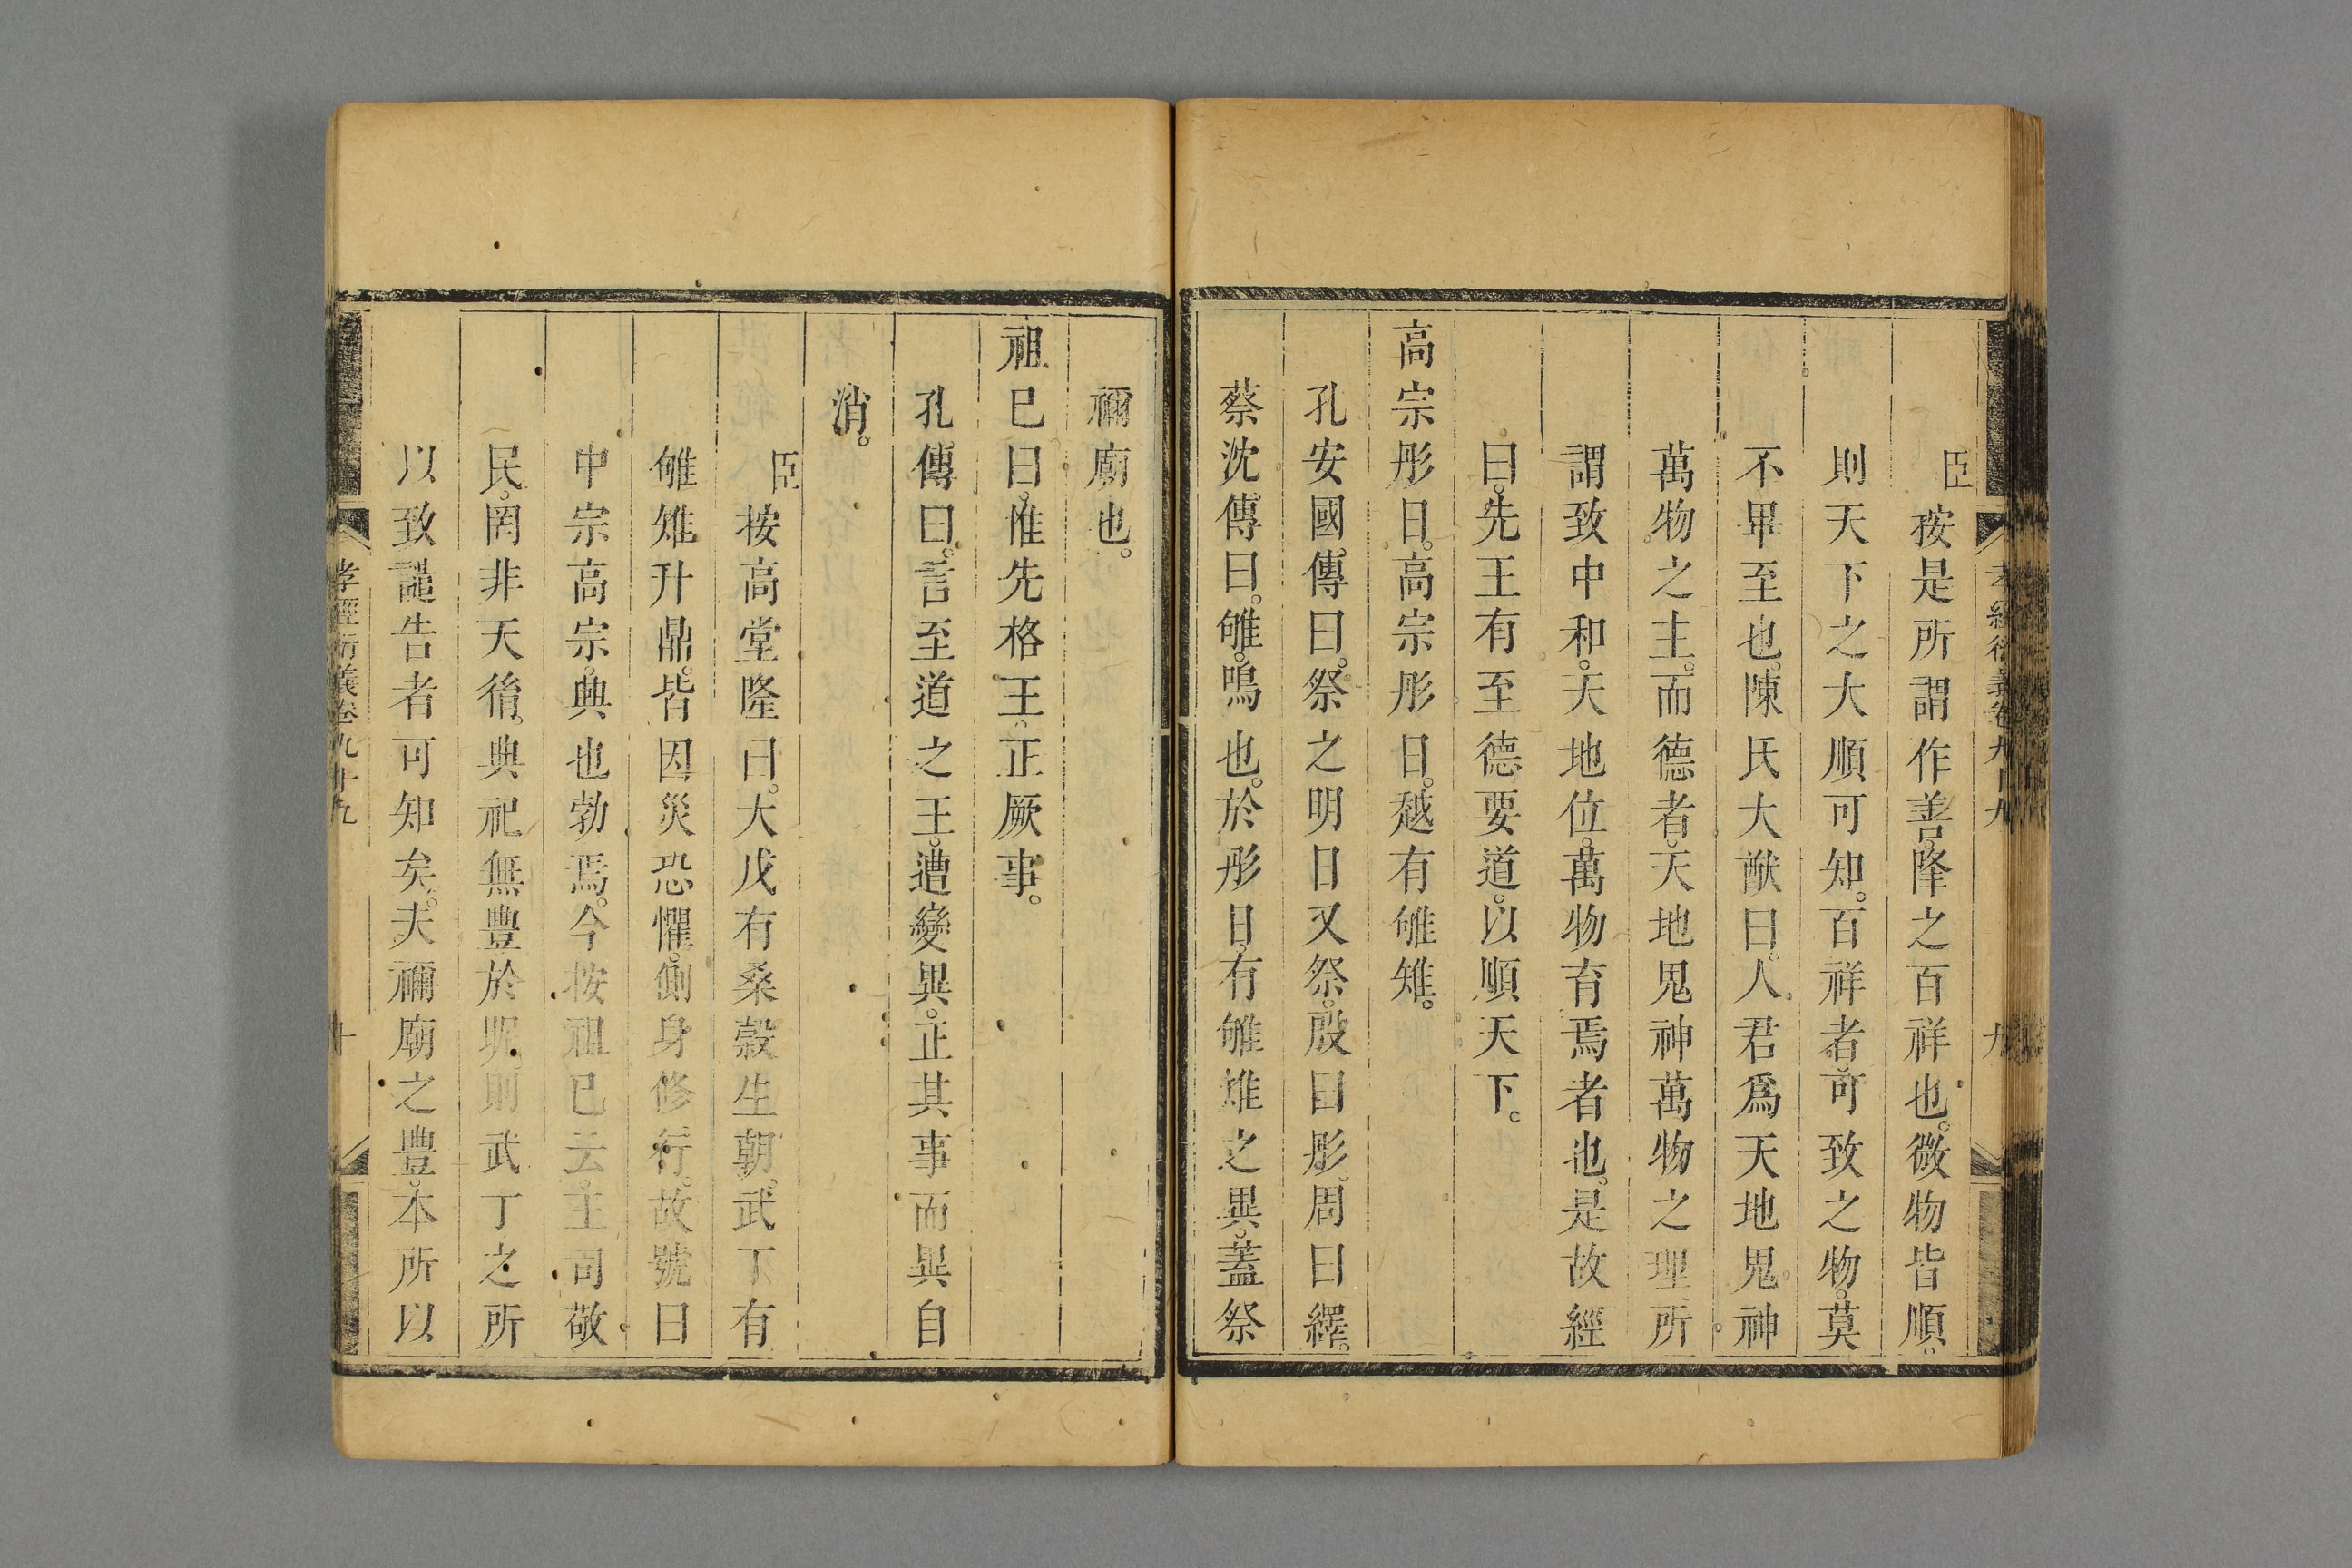 孝經衍義卷九十九 九
臣按是所謂作善降之百祥也。微物皆順。
則天下之大順可知。百祥者。可致之物。莫
不畢至也。陳氏大猷曰。人君爲天地鬼神
萬物之主。而德者。天地鬼神萬物之理。所
謂致中和。天地位。萬物育焉者也。是故經
曰。先王有至德要道。以順天下。
高宗肜日。高宗肜日。越有雊雉。
孔安國傳曰。祭之明日又祭。殷曰肜。周曰繹。
蔡沈傳曰。雊。鳴也。於肜日。有雊雉之異。蓋祭
禰廟也。
祖已曰。惟先格王。正厥事。
孔傳曰。言至道之王。遭變異。正其事而異自
消。
臣按高堂隆曰。大戊有桑榖生朝。武丁有
雊雉升鼎。皆因災恐懼。側身修行。故號曰
中宗高宗。興也勃焉。今按祖已云。王司敬
民。罔非天㣧。典祀無豊於昵。則武丁之所
以致譴告者可知矣。夫禰廟之豊。本所以
孝經衍義卷九十九 十